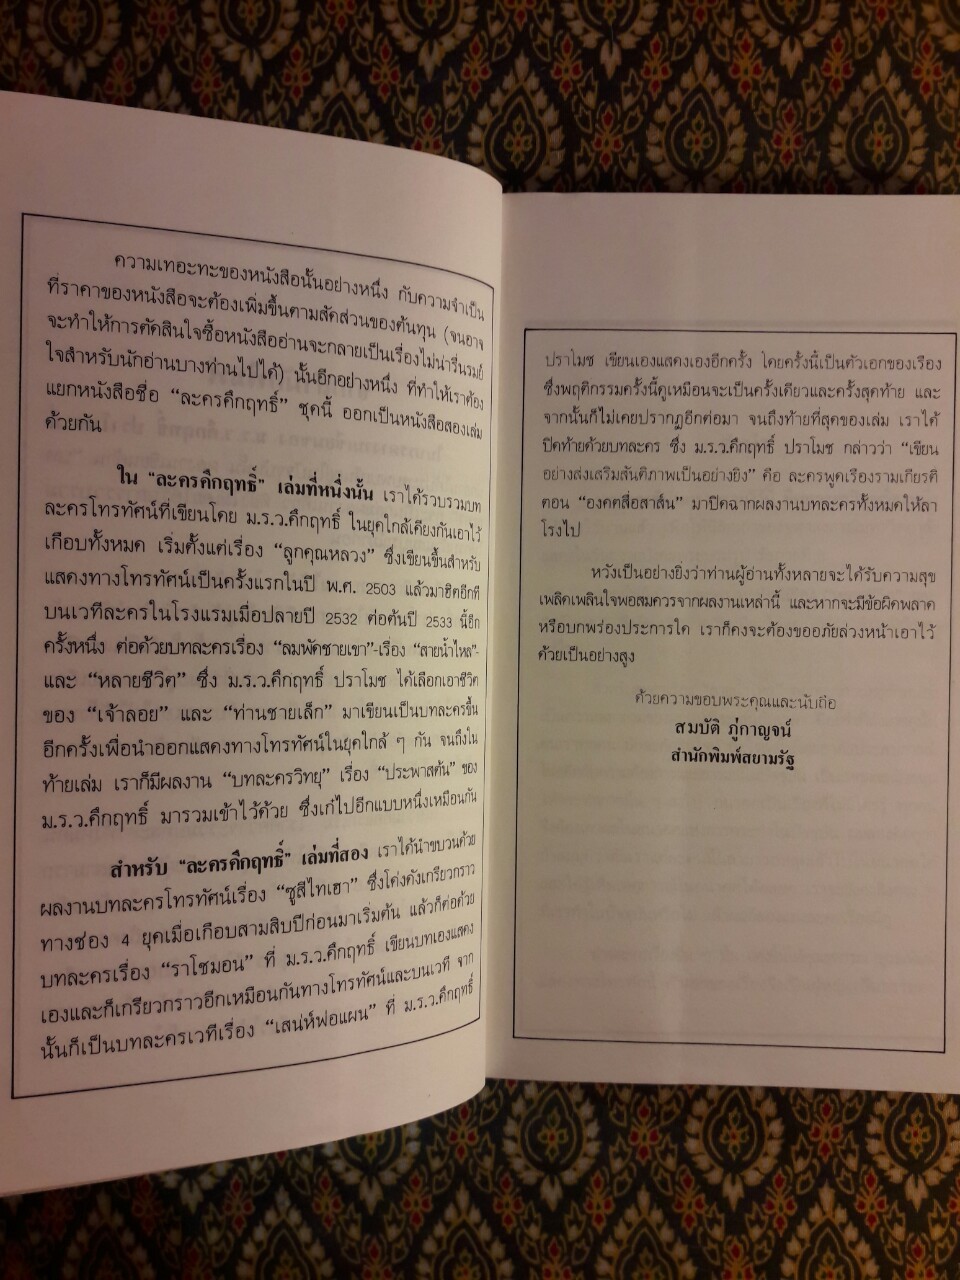 ความเทอะทะของหนังสือนั้นอย่างหนึ่ง กับความจำเป็น
ที่ราคาของหนังสือจะต้องเพิ่มขึ้นตามสัดส่วนของต้นทุน (จนอาจ
จะทำให้การตัดสินใจซื้อหนังสืออ่านจะกลายเป็นเรื่องไม่น่ารื่นรมย์
ใจสำหรับนักอ่านบางท่านไปได้) นั้นอีกอย่างหนึ่ง ที่ทำให้เราต้อง
แยกหนังสือชื่อ “ละครคึกฤทธิ์” ชุดนี้ ออกเป็นหนังสือสองเล่ม
ด้วยกัน
ใน “ละครคึกฤทธิ์” เล่มที่หนึ่งนั้น เราได้รวบรวมบท
ละครโทรทัศน์ที่เขียนโดย ม.ร.ว.คึกฤทธิ์ ในยุคใกล้เคียงกันเอาไว้
เกือบทั้งหมด เริ่มตั้งแต่เรื่อง “ลูกคุณหลวง” ซึ่งเขียนขึ้นสำหรับ
แสดงทางโทรทัศน์เป็นครั้งแรกในปี พ.ศ. 2503 แล้วมาฮิตอีกที
บนเวทีละครในโรงแรมเมื่อปลายปี 2532 ต่อต้นปี 2533 นี้อีก
ครั้งหนึ่ง ต่อด้วยบทละครเรื่อง “ลมพัดชายเขา”-เรื่อง “สายน้ำไหล”-
และ “หลายชีวิต” ซึ่ง ม.ร.ว.คึกฤทธิ์ ปราโมช ได้เลือกเอาชีวิต
ของ “เจ้าลอย” และ “ท่านชายเล็ก” มาเขียนเป็นบทละครขึ้น
อีกครั้งเพื่อนำออกแสดงทางโทรทัศน์ในยุคใกล้ ๆ กัน จนถึงใน
ท้ายเล่ม เราก็มีผลงาน “บทละครวิทยุ” เรื่อง “ประพาสต้น” ของ
ม.ร.ว.คึกฤทธิ์ มารวมเข้าไว้ด้วย ซึ่งเก๋ไปอีกแบบหนึ่งเหมือนกัน
สำหรับ “ละครคึกฤทธิ์” เล่มที่สอง เราได้นำขบวนด้วย
ผลงานบทละครโทรทัศน์เรื่อง “ซูสีไทเฮา” ซึ่งโด่งดังเกรียวกราว
ทางช่อง 4 ยุคเมื่อเกือบสามสิบปีก่อนมาเริ่มต้น แล้วก็ต่อด้วย
บทละครเรื่อง “ราโชมอน” ที่ ม.ร.ว.คึกฤทธิ์ เขียนบทเองแสดง
เองและก็เกรียวกราวอีกเหมือนกันทางโทรทัศน์และบนเวที จาก
นั้นก็เป็นบทละครเวทีเรื่อง “เสน่ห์พ่อแผน” ที่ ม.ร.ว.คึกฤทธิ์
ปราโมช เขียนเองแสดงเองอีกครั้ง โดยครั้งนี้เป็นตัวเอกของเรื่อง
ซึ่งพฤติกรรมครั้งนี้ดูเหมือนจะเป็นครั้งเดียวและครั้งสุดท้าย และ
จากนั้นก็ไม่เคยปรากฏอีกต่อมา จนถึงท้ายที่สุดของเล่ม เราได้
ปิดท้ายด้วยบทละคร ซึ่ง ม.ร.ว.คึกฤทธิ์ ปราโมช กล่าวว่า “เขียน
อย่างส่งเสริมสันติภาพเป็นอย่างยิ่ง” คือ ละครพูดเรื่องรามเกียรติ์
ตอน “องคตสื่อสาส์น” มาปิดฉากผลงานบทละครทั้งหมดให้ลา
โรงไป
หวังเป็นอย่างยิ่งว่าท่านผู้อ่านทั้งหลายจะได้รับความสุข
เพลิดเพลินใจพอสมควรจากผลงานเหล่านี้ และหากจะมีข้อผิดพลาด
หรือบกพร่องประการใด เราก็คงจะต้องขออภัยล่วงหน้าเอาไว้
ด้วยเป็นอย่างสูง
ด้วยความขอบพระคุณและนับถือ
สมบัติ ภู่กาญจน์
สำนักพิมพ์สยามรัฐ